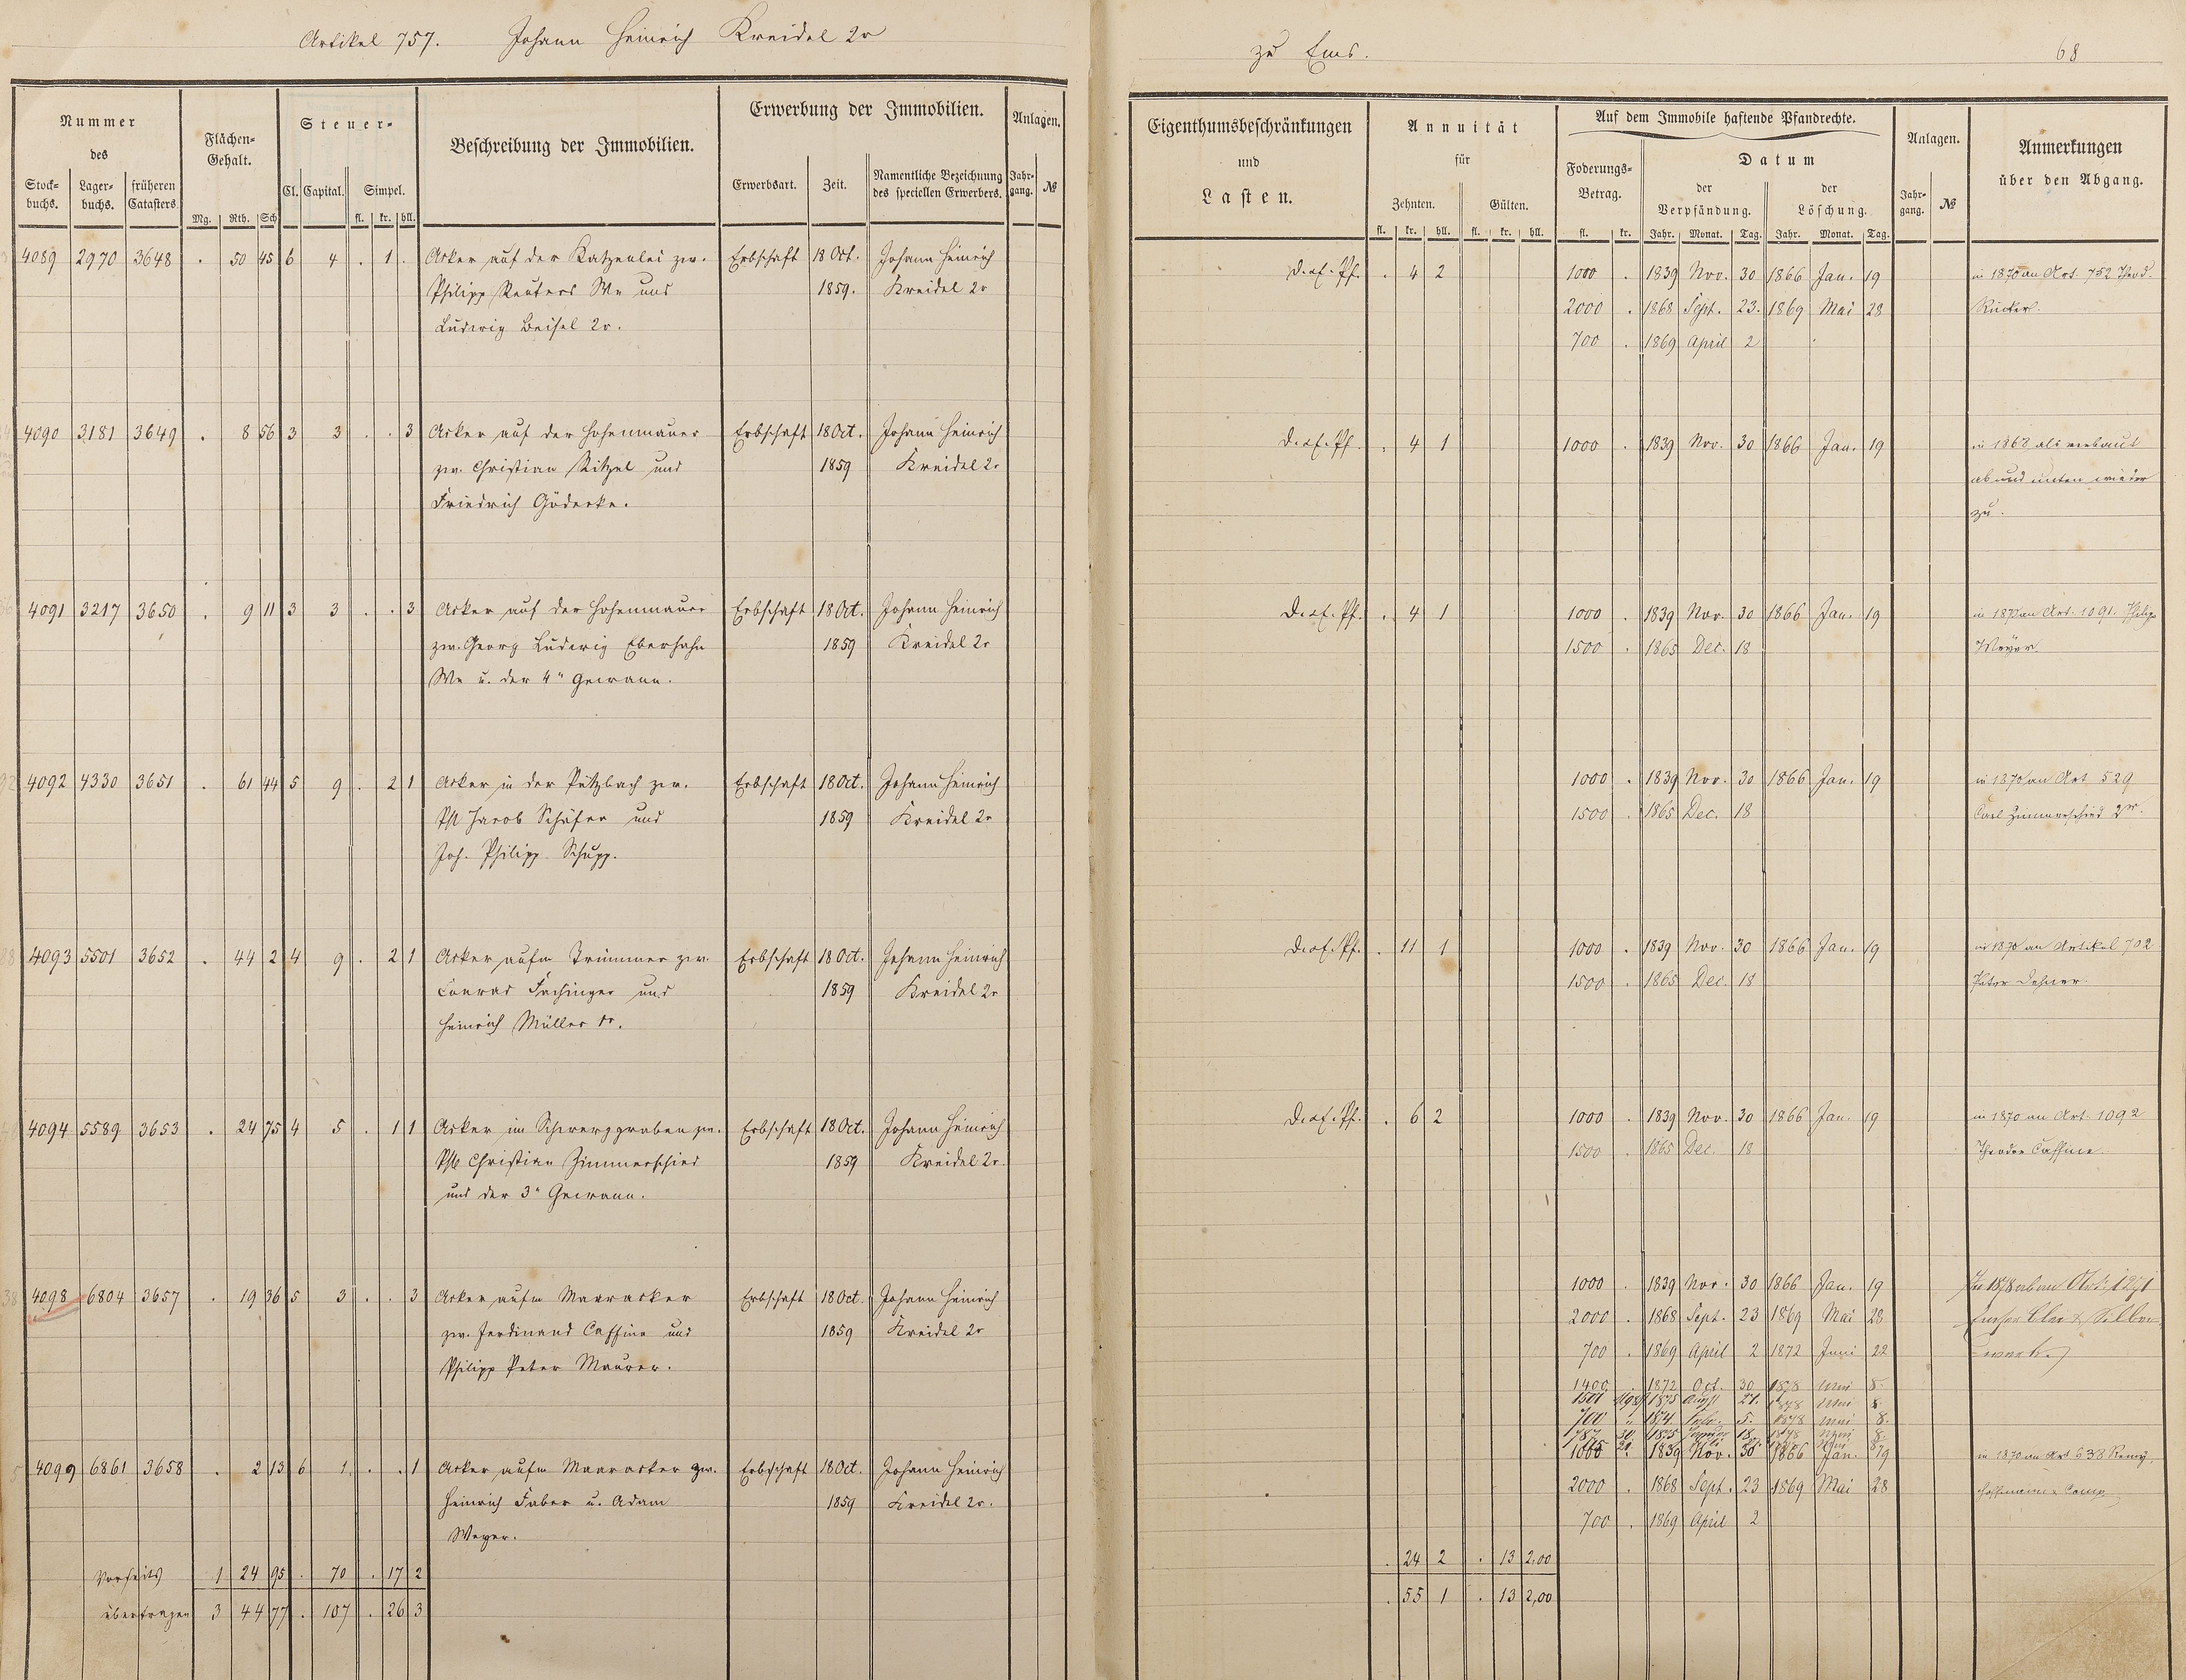 Artikel 757. Johann Heinrich Kreidel 2r
Nummer des
Stockbuchs. Lagerbuchs. früheren Catasters.
Flächen-Gehalt.
Mg. Rth. Sch
Steuer-
Cl. Capital. Simpel.
fl. kr. hll.
Beschreibung der Immobilien.
Erwerbung der Immobilien.
Erwerbsart. Zeit. Namentliche Bezeichnung des speciellen Erwerbers.
Anlagen.
Jahrgang. №
4089 2970 3648 . 50 45 6 4 . 1 . Acker auf der Katzenlei zw. Erbschaft 18 Oct. Johann Heinrich
Philipp Reuters We und 1859. Kreidel 2r
Ludwig Beisel 2r.
4090 3181 3649 . 8 56 3 3 . . 3 Acker auf der Hohenmauer Erbschaft 18 Oct. Johann Heinrich
zw. Christian Ritzel und 1859 Kreidel 2r
Friedrich Gödecke.
4091 3217 3650 . 9 11 3 3 . . 3 Acker auf der Hohenmauer Erbschaft 18 Oct. Johann Heinrich
zw. Georg Ludwig Ebershahn 1859 Kreidel 2r
We u. der 4n Gewann.
4092 4330 3651 . 61 44 5 9 . 2 1 Acker in der Pützbach zw. Erbschaft 18 Oct. Johann Heinrich
Phl Jacob Schäfer und 1859 Kreidel 2r
Joh. Philipp Schupp.
4093 5501 3652 . 44 2 4 9 . 2 1 Acker aufm Trümmer zw. Erbschaft 18 Oct. Johann Heinrich
Conrad Fachinger und 1859 Kreidel 2r
Heinrich Müller 1r.
4094 5589 3653 . 24 75 4 5 . 1 1 Acker im Schwerzgraben zw. Erbschaft 18 Oct. Johann Heinrich
Phl Christian Zimmerschied 1859 Kreidel 2r.
und der 3n Gewann.
4098 6804 3657 . 19 36 5 3 . . 3 Acker aufm Maaracker Erbschaft 18 Oct. Johann Heinrich
zw. Ferdinand Caffine und 1859 Kreidel 2r
Philipp Peter Maurer.
4099 6861 3658 . 2 13 6 1 . . 1 Acker aufm Maaracker zw. Erbschaft 18 Oct. Johann Heinrich
Heinrich Faber u. Adam 1859 Kreidel 2r.
Weyer.
Vorseits 1 24 95 . 70 . 17 2
übertragen 3 44 77 . 107 . 26 3
zu Ems. 68
Eigenthumsbeschränkungen und Lasten.
Annuität für
Zehnten. Gülten.
fl. kr. hll. fl. kr. hll.
Auf dem Immobile haftende Pfandrechte.
Foderungs-Betrag.
fl. kr.
Datum
der Verpfändung. der Löschung.
Jahr. Monat. Tag. Jahr. Monat. Tag.
Anlagen.
Jahrgang. №
Anmerkungen über den Abgang.
. 4 2 1000 . 1839 Nov. 30 1866 Jan. 19 in 1870 an Art. 752
2000 . 1868 Sept. 23. 1869 Mai 28
700 . 1869 April 2
. 4 1 1000 . 1839 Nov. 30 1866 Jan. 19 in 1868 als verbaut
ab und unten wieder
zu.
. 4 1 1000 . 1839 Nov. 30 1866 Jan. 19 in 1870 an Art. 1091. Philipp
1500 . 1865 Dec. 18 Meyer.
1000 . 1839 Nov. 30 1866 Jan. 19 in 1870 an Art 529
1500 . 1865 Dec. 18 Carl Zimmerschied 2r.
. 11 1 1000 . 1839 Nov. 30 1866 Jan. 19 in 1870 an Artikel 702
1500 . 1865 Dec. 18 Peter
. 6 2 1000 . 1839 Nov. 30 1866 Jan. 19 in 1870 an Art. 1092
1500 . 1865 Dec. 18 Theodor Caffine
1000 . 1839 Nov. 30 1866 Jan. 19 In 1878 ab an Art.
2000 . 1868 Sept. 23 1869 Mai 28 Emser Blei & Silber
700 . 1869 April 2 1872 Juni 22 werk.
1400 1872 Oct. 30 1878 8
1875 1878 8
700 1874 5. 1878 8.
1875 18. 1878 8
1000 . 1839 Nov. 30 1866 Jan. 19 in 1870 an Art 638 Remy
2000 . 1868 Sept. 23 1869 Mai 28 Hoffmann & Comp
700 . 1869 April 2
. 24 2 . 13 2,00
. 55 1 . 13 2,00